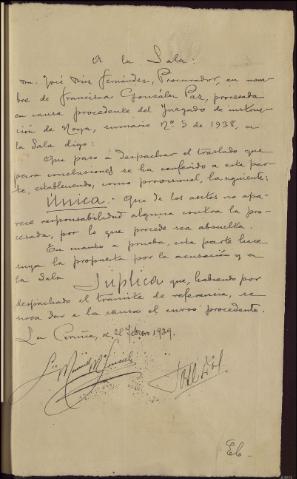 A la Sala:
Don José Fernández, Procurador, en nom-
bre de Francisca González Paz, procesada
en causa procedente del Juzgado de instruc-
ción de Noya, sumario Nº 3 de 1938, a
la Sala digo:
Que paso a despachar el traslado que
para conclusiones se ha conferido a esta par-
te, estableciendo, como provisional, la siguiente:
Única. Que de los autos no apa-
rece responsabilidad alguna contra la pro-
cesada, por lo que procede sea absuelta.
En cuanto a prueba, esta parte hace
suya la propuesta por la acusación y a
la Sala
Suplica que, habiendo por
despachado el trámite de referencia, se
sirva dar a la causa el curso procedente.
La Coruña, a 21 Febrero 1939.